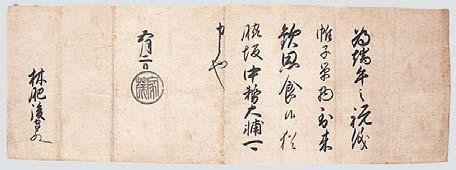 為端午之祝儀
帷子単物到来
歓思食候猶
脇坂中務大輔可
申也
五月
林肥後守とのへ